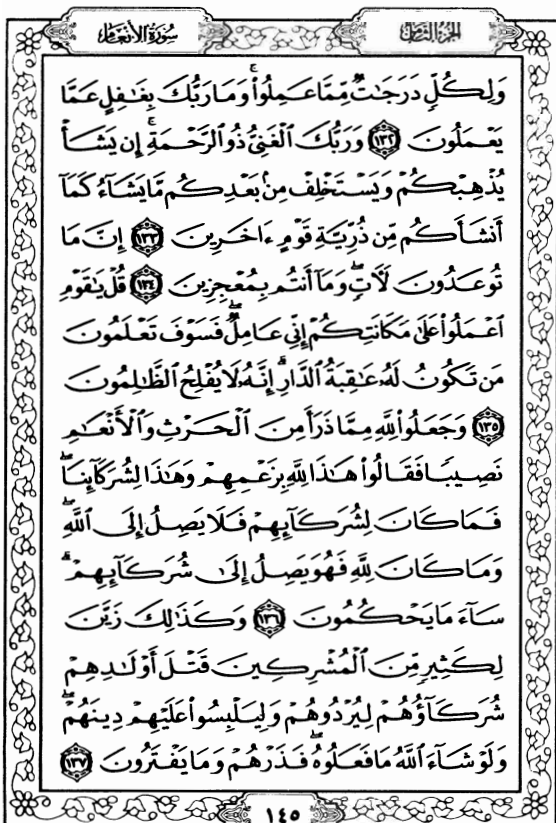 سُورَةُ الأَنْعَامِ
الجُزْءُ الثَّامِنُ
وَلِكُلٍّ دَرَجَٰتٌ مِّمَّا عَمِلُوا۟ ۚ وَمَا رَبُّكَ بِغَٰفِلٍ عَمَّا
يَعْمَلُونَ ١٣٢ وَرَبُّكَ ٱلْغَنِىُّ ذُو ٱلرَّحْمَةِ ۚ إِن يَشَأْ
يُذْهِبْكُمْ وَيَسْتَخْلِفْ مِنۢ بَعْدِكُم مَّا يَشَآءُ كَمَآ
أَنشَأَكُم مِّن ذُرِّيَّةِ قَوْمٍ ءَاخَرِينَ ١٣٣ إِنَّ مَا
تُوعَدُونَ لَـَٔاتٍ ۖ وَمَآ أَنتُم بِمُعْجِزِينَ ١٣٤ قُلْ يَٰقَوْمِ
ٱعْمَلُوا۟ عَلَىٰ مَكَانَتِكُمْ إِنِّى عَامِلٌ ۖ فَسَوْفَ تَعْلَمُونَ
مَن تَكُونُ لَهُۥ عَٰقِبَةُ ٱلدَّارِ ۗ إِنَّهُۥ لَا يُفْلِحُ ٱلظَّٰلِمُونَ
١٣٥ وَجَعَلُوا۟ لِلَّهِ مِمَّا ذَرَأَ مِنَ ٱلْحَرْثِ وَٱلْأَنْعَٰمِ
نَصِيبًا فَقَالُوا۟ هَٰذَا لِلَّهِ بِزَعْمِهِمْ وَهَٰذَا لِشُرَكَآئِنَا ۖ
فَمَا كَانَ لِشُرَكَآئِهِمْ فَلَا يَصِلُ إِلَى ٱللَّهِ ۖ
وَمَا كَانَ لِلَّهِ فَهُوَ يَصِلُ إِلَىٰ شُرَكَآئِهِمْ ۗ
سَآءَ مَا يَحْكُمُونَ ١٣٦ وَكَذَٰلِكَ زَيَّنَ
لِكَثِيرٍ مِّنَ ٱلْمُشْرِكِينَ قَتْلَ أَوْلَٰدِهِمْ
شُرَكَآؤُهُمْ لِيُرْدُوهُمْ وَلِيَلْبِسُوا۟ عَلَيْهِمْ دِينَهُمْ ۖ
وَلَوْ شَآءَ ٱللَّهُ مَا فَعَلُوهُ ۖ فَذَرْهُمْ وَمَا يَفْتَرُونَ ١٣٧
١٤٥